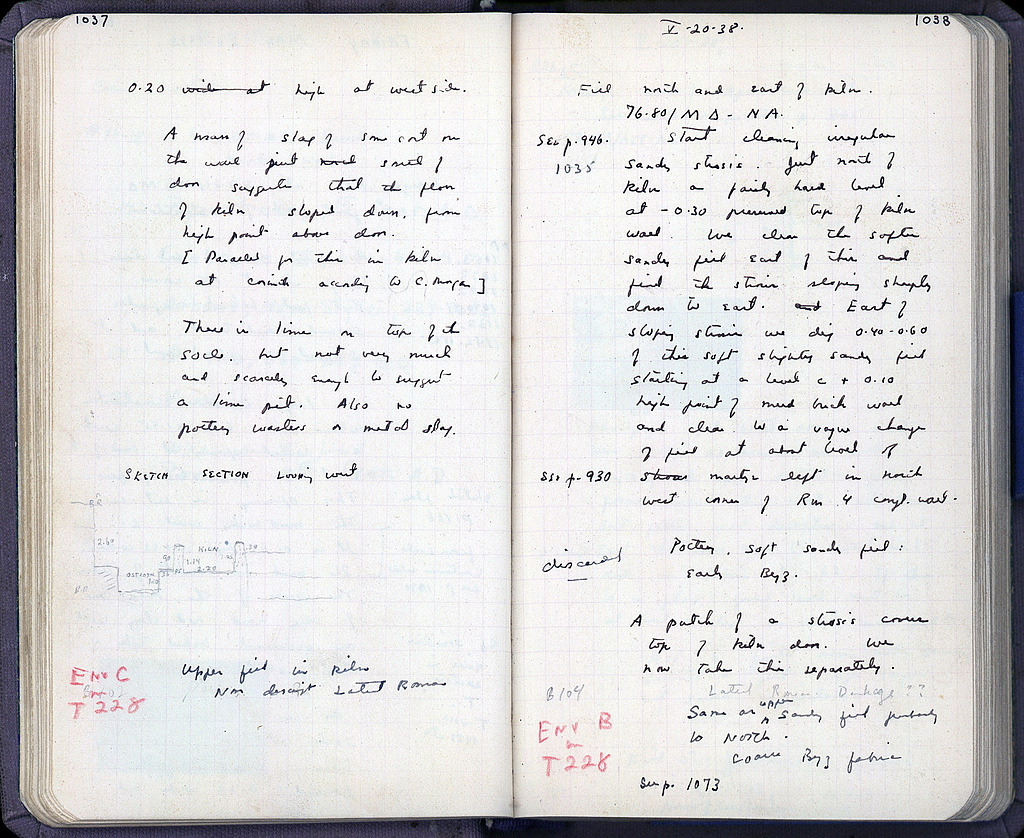 1037
0.20 wide at high at west side.
A mass of slag of some sort on
the wall just north south of
door suggests that the floor
of kiln sloped down, from
high point above door.
[ Parallel for this in kiln
at Corinth according to C. Morgan ]
There is lime on top of the
socle, but not very much
and scarcely enough to suggest
a lime pit. Also no
pottery wasters or metal slag.
SKETCH SECTION LOOKING west
2.60
KILN
.90
1.14
2.20
OSTEOTH
1.10
ENV C
T 228
Upper fill in kiln
Non descript Late Roman
1038
V-20-38.
Fill north and east of kiln.
76-80/ΜΔ - ΝΑ.
See p. 946. Start cleaning irregular
1035 sandy strosis. Just north of
kiln a fairly hard level
at -0.30 preserved top of kiln
wall. We clear the softer
sandy fill east of this and
find the strosis sloping sharply
down to east. and East of
sloping strosis we dig 0.40-0.60
of this soft slightly sandy fill
starting at a level c + 0.10
high point of mud brick wall
and clear to a vague change
of fill at about level of
See p. 930 martyr left in north
west corner of Rm 4 congl. wall.
discard
Pottery, soft sandy fill:
Early Byz.
A patch of a strosis covers
top of kiln door. We
now take this separately.
B 104 Late Roman ??
Same as upper sandy fill
to North.
ENV B
in
T 228
Coarse Byz fabric
See p. 1073